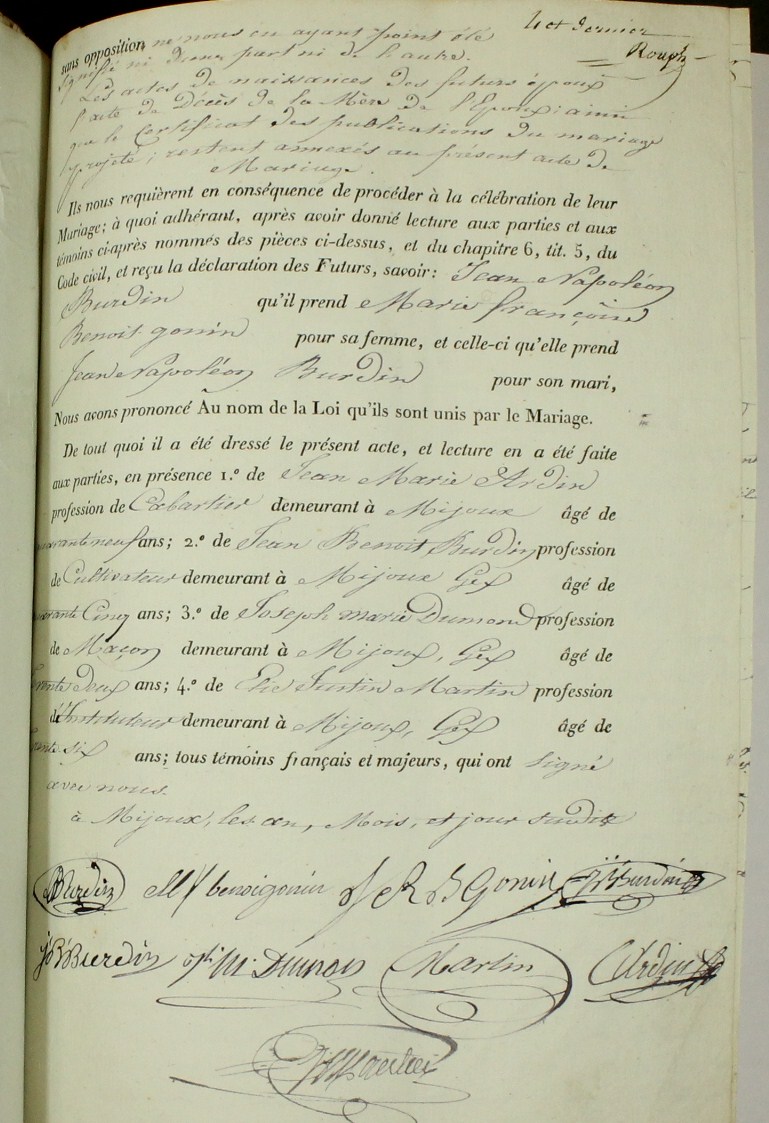 4 et dernier
Roup
sans opposition ne nous en ayant point été
signifié ni d'une part ni de l'autre.
Les actes de naissances des futurs époux
l'acte de Décès de la Mère de l'Epoux; ainsi
que le Certificat des publications du mariage
projeté; restent annexés au présent acte de
Mariage.
Ils nous requièrent en conséquence de procéder à la célébration de leur
Mariage; à quoi adhérant, après avoir donné lecture aux parties et aux
témoins ci-après nommés des pièces ci-dessus, et du chapitre 6, tit. 5, du
Code civil, et reçu la déclaration des Futurs, savoir: Jean Napoléon
Burdin qu'il prend Marie françoise
Benoit gonin pour sa femme, et celle-ci qu'elle prend
Jean Napoléon Burdin pour son mari,
Nous avons prononcé Au nom de la Loi qu'ils sont unis par le Mariage.
De tout quoi il a été dressé le présent acte, et lecture en a été faite
aux parties, en présence 1.º de Jean Marie Ardin
profession de Cabartier demeurant à Mijoux âgé de
quarante neuf ans; 2.º de Jean Benoit Burdin profession
de Cultivateur demeurant à Mijoux Gex âgé de
quarante Cinq ans; 3.º de Joseph marie Dumond profession
de Maçon demeurant à Mijoux, Gex âgé de
Deux ans; 4.º de Elie Justin Martin profession
d'Instituteur demeurant à Mijoux, Gex âgé de
six ans; tous témoins français et majeurs, qui ont signé
avec nous.
à Mijoux, les an, Mois, et jour susdits
Burdin M f benoigonin J R B Gonin Burdin
JB Burdin M. Dumon Martin Ardin